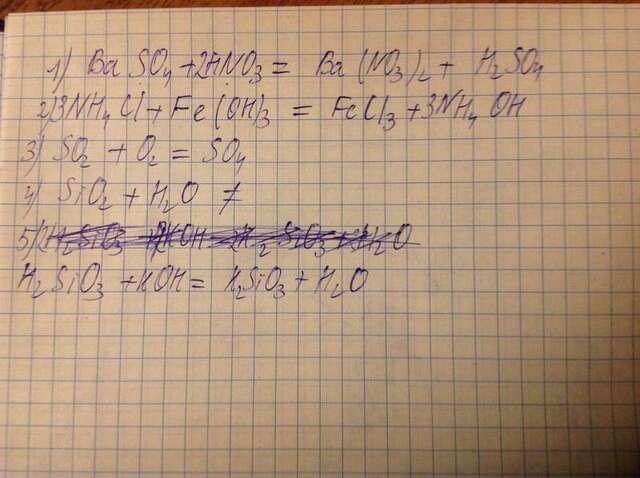 1) BaSO4 + 2HNO3 = Ba(NO3)2 + H2SO4
2) 3NH4Cl + Fe(OH)3 = FeCl3 + 3NH4OH
3) SO2 + O2 = SO4
4) SiO2 + H2O ≠
5)
H2SiO3 + KOH = K2SiO3 + H2O